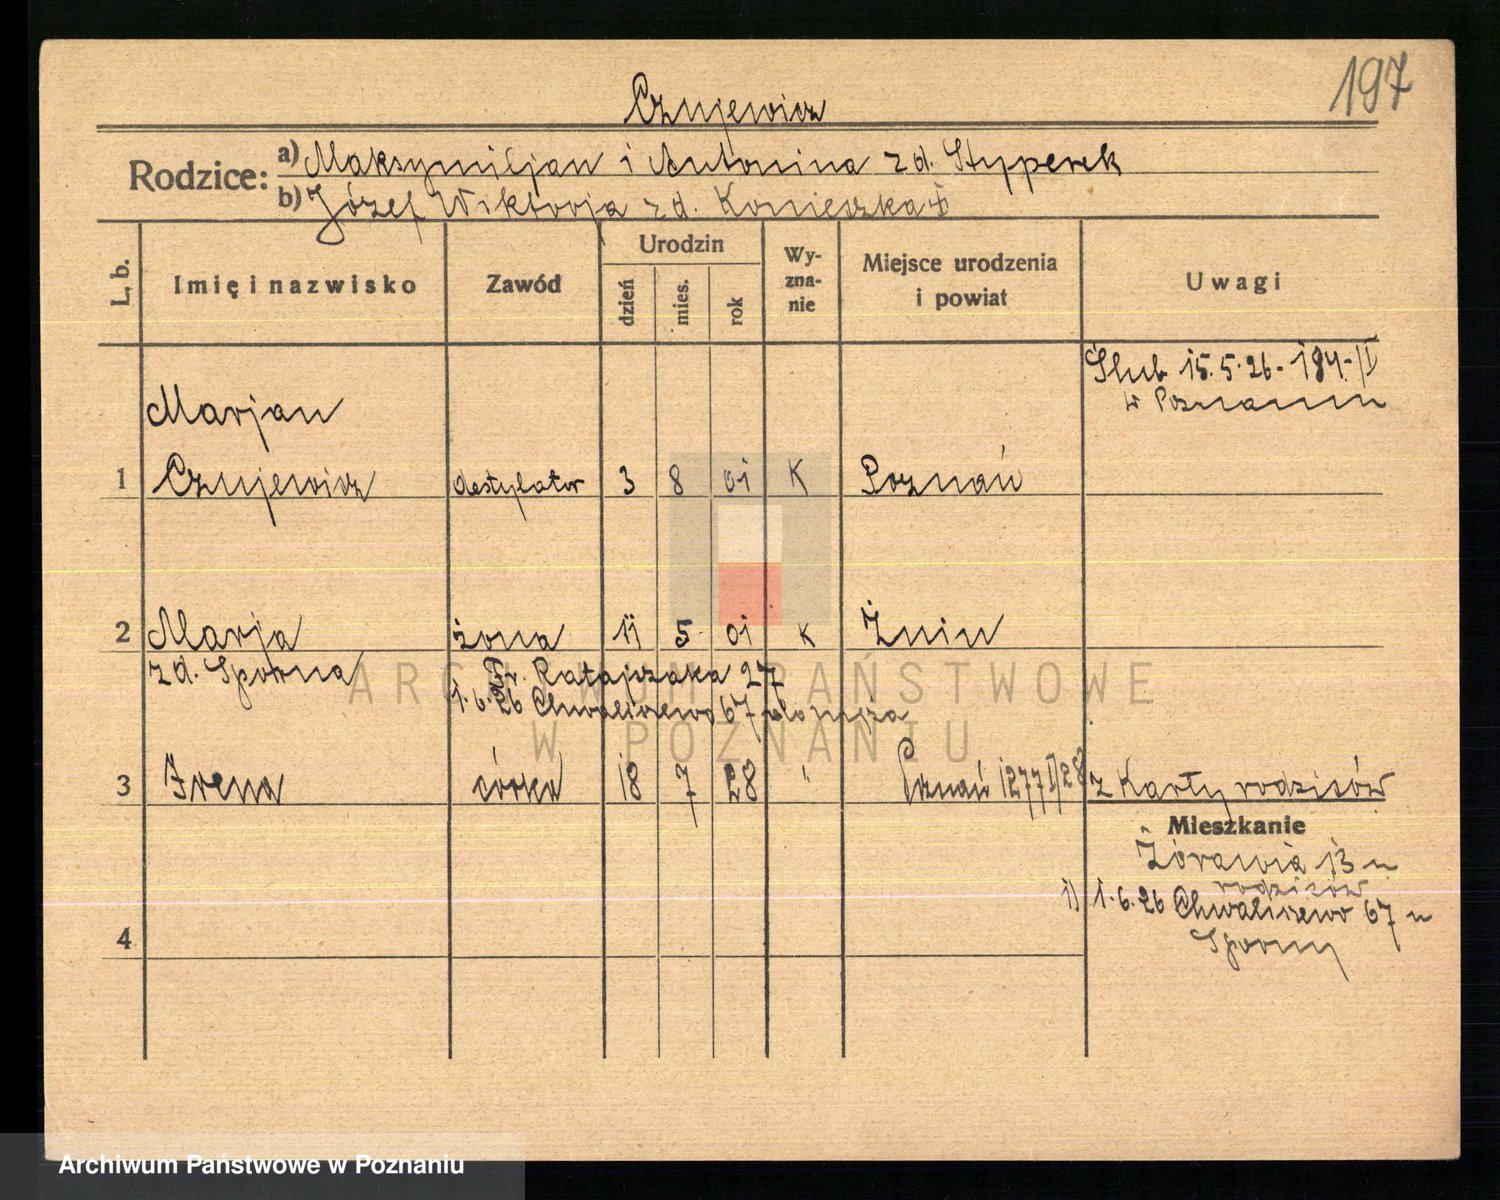 197
Czujewicz
Rodzice:
a) Maksymiljan i Antonina z d. Styperek
b) Józef Wiktorja z d. Konieczka
L. b.
Imię i nazwisko
Zawód
Urodzin
dzień
mies.
rok
Wy-
zna-
nie
Miejsce urodzenia
i powiat
Uwagi
Ślub 15.5.26 - 184-II
w Poznaniu
Marjan
1 Czujewicz destylator 3 8 01 K Poznań
2 Marja żona 11 5 01 K Żnin
z d. Sporna Fr. Ratajczaka 27
1.6.26 Chwaliszewo 67
3 Irena córka 18 7 28 " Poznań 1277 I/28 z Karty rodziców
Mieszkanie
Żórawia 13 u
rodziców
1) 1.6.26 Chwaliszewo 67 u
Sporny
4
ARCHIWUM PAŃSTWOWE
W POZNANIU
Archiwum Państwowe w Poznaniu